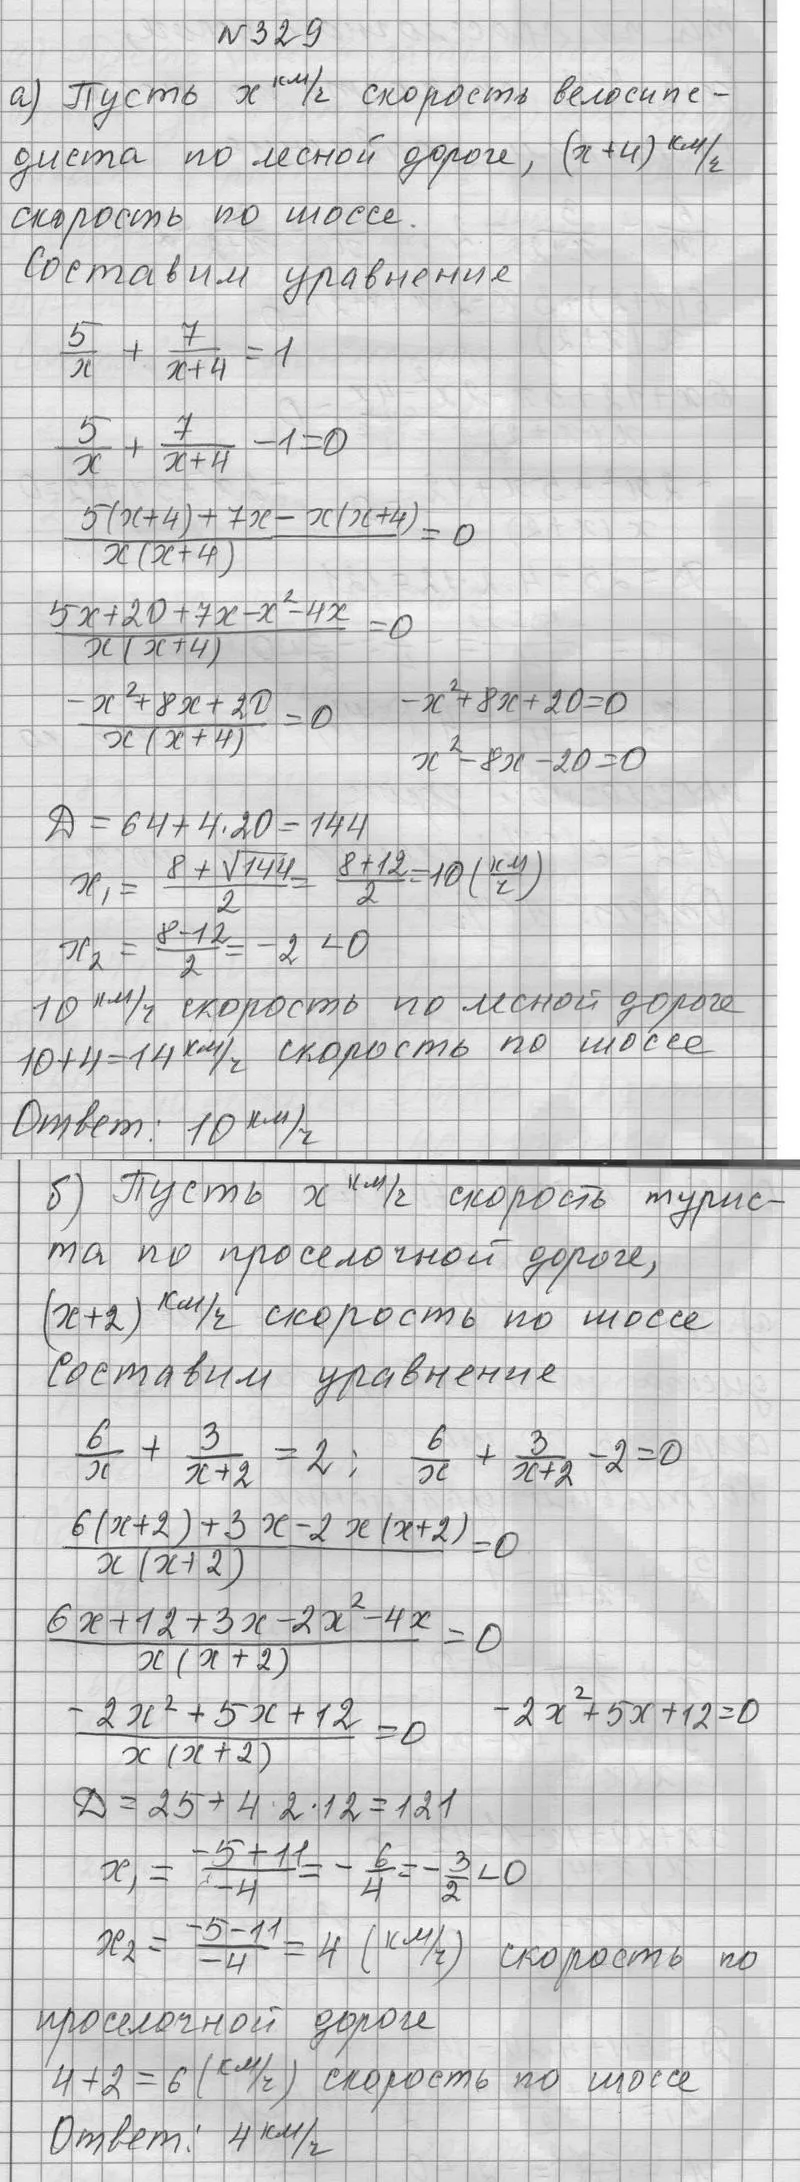 N329
а) Пусть x км/ч скорость велосипе-
диста по лесной дороге, (x+4) км/ч
скорость по шоссе.
Составим уравнение
5/x + 7/(x+4) = 1
5/x + 7/(x+4) - 1 = 0
(5(x+4) + 7x - x(x+4))/(x(x+4)) = 0
(5x+20+7x-x²-4x)/(x(x+4)) = 0
(-x²+8x+20)/(x(x+4)) = 0 -x²+8x+20=0
x²-8x-20=0
Д = 64+4·20=144
x₁ = (8+√144)/2 = (8+12)/2 = 10 (км/ч)
x₂ = (8-12)/2 = -2 < 0
10 км/ч скорость по лесной дороге
10+4=14 км/ч скорость по шоссе
Ответ: 10 км/ч
б) Пусть x км/ч скорость турис-
та по проселочной дороге,
(x+2) км/ч скорость по шоссе
Составим уравнение
6/x + 3/(x+2) = 2; 6/x + 3/(x+2) - 2 = 0
(6(x+2)+3x-2x(x+2))/(x(x+2)) = 0
(6x+12+3x-2x²-4x)/(x(x+2)) = 0
(-2x²+5x+12)/(x(x+2)) = 0 -2x²+5x+12=0
Д = 25+4·2·12=121
x₁ = (-5+11)/(-4) = -6/4 = -3/2 < 0
x₂ = (-5-11)/(-4) = 4 (км/ч) скорость по
проселочной дороге
4+2=6 (км/ч) скорость по шоссе
Ответ: 4 км/ч